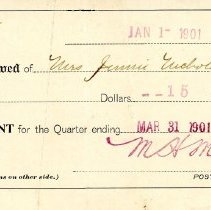 JAN 1- 1901
ved of Mrs Jennie Nichol
Dollars --15
NT for the Quarter ending MAR 31 1901
M H M
ns on other side.) POST